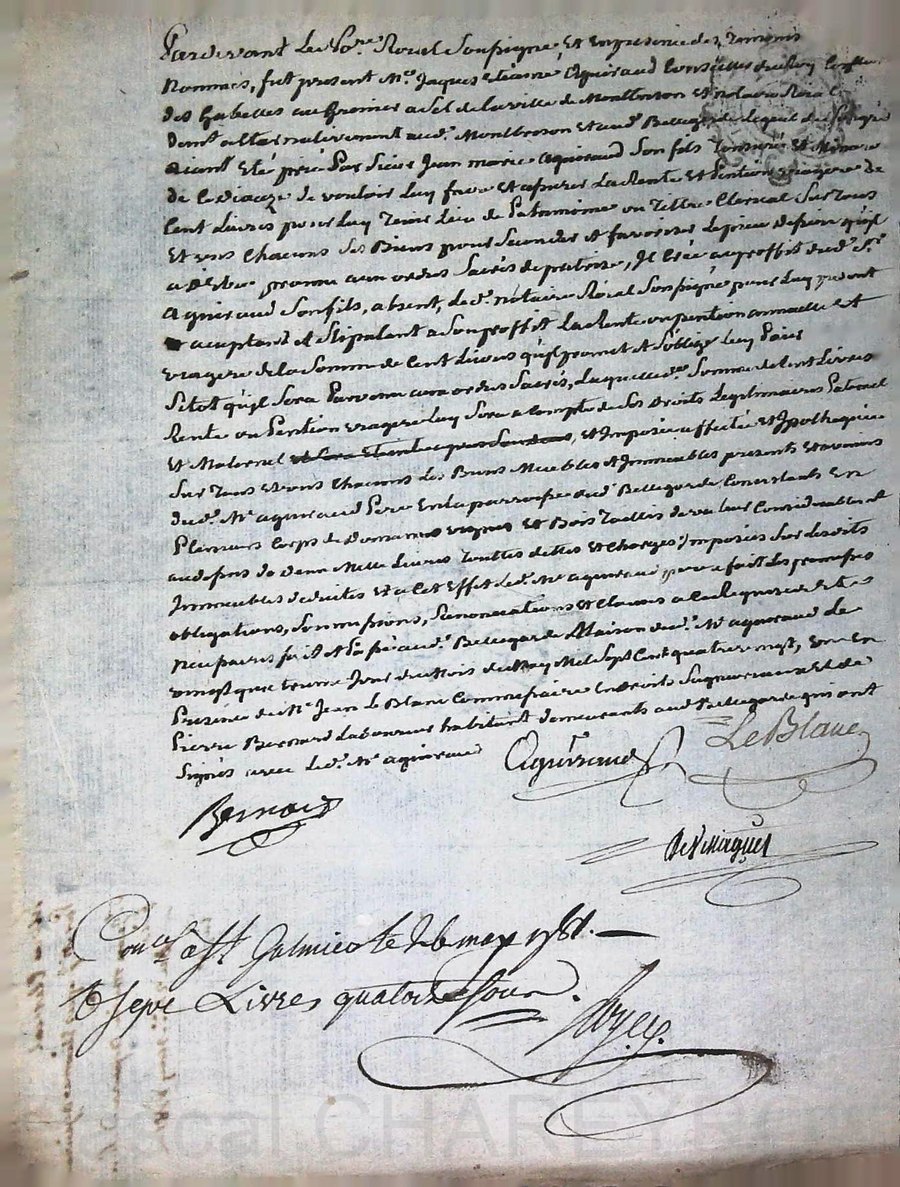 Pardevant Le No.re Royal Soussigné Et En presence des Temoins
Nommés, fut present M.e Jaques Etienne Aguiraud Conseiller du Roy
des Gabelles au Grenier a Sel de la ville de Montbrison Et Notaire Royal
demt alternativement aud. Montbrison Et aud. Bellegarde Lequel
aiant Eté prié Par Sieur Jean marie aguiraud Son fils Tonsuré Et
de ce Dioceze de vouloir Luy faire Et assurer La Rente Et Pention viagere de
Cent Livres pour Luy Tenir Lieu de Patrimoine ou Tittre Clerical Sur Tous
Et uns Chacuns Ses Biens pour Seconder Et favoriser Le pieu dessein qu'il
a D'Etre promu aux ordres Sacrés de pretrise, Il Crée au proffit dud. S.r
Aguiraud Son fils, absent, Led. notaire Royal Soussigné pour Luy present
acceptant Et Stipulant a Son proffit La Rente ou pention annuelle Et
viagere de la Somme de Cent Livres qu'il promet Et S'oblige Luy Paier
Sitot qu'il Sera Parvenu aux ordres Sacrés, Laquelle d.e Somme de Cent Livres
Rente ou Pention viagere Luy Sera a Compte de Ses Droits Legitimaires Paternel
Et Maternel, Et Imposée affectée Et Ipothequée
Sur Tous Et uns Chacuns Les Biens Meubles Et Immeubles presents Et avenir
dud. M.e aguiraud Pere En la parroisse dud. Bellegarde Consistants En
Plusieurs Corps de Domaines vignes Et Bois Taillis de valeur Considerable Et
audessus de Deux Mille Livres Touttes dettes Et Charges Imposées Sur Lesdits
Immeubles deduites Et a Cet Effet Led. M.e aguiraud pere a fait Les promesses
obligations, Soumissions, Renonciations Et Clauses a Ce Requises Et
necessaires fait Et Passé aud. Bellegarde Maison dud. M.e aguiraud Le
vingt quatrieme Jour du Mois de May Mil Sept Cent quatre vingt, un En
Presence de M.e Jean Le Blanc Commissaire En droits Seigneuriaux Et de
Pierre Bernard Laboureur habitant demeurants aud. Bellegarde qui ont
Signés avec Led. M.e aguiraud
Aguiraud LeBlanc
Bernard
Con.lé a St Galmier le 26 may 1781.
R sept Livres quatorze Sous.
Pascal CHAREYRON